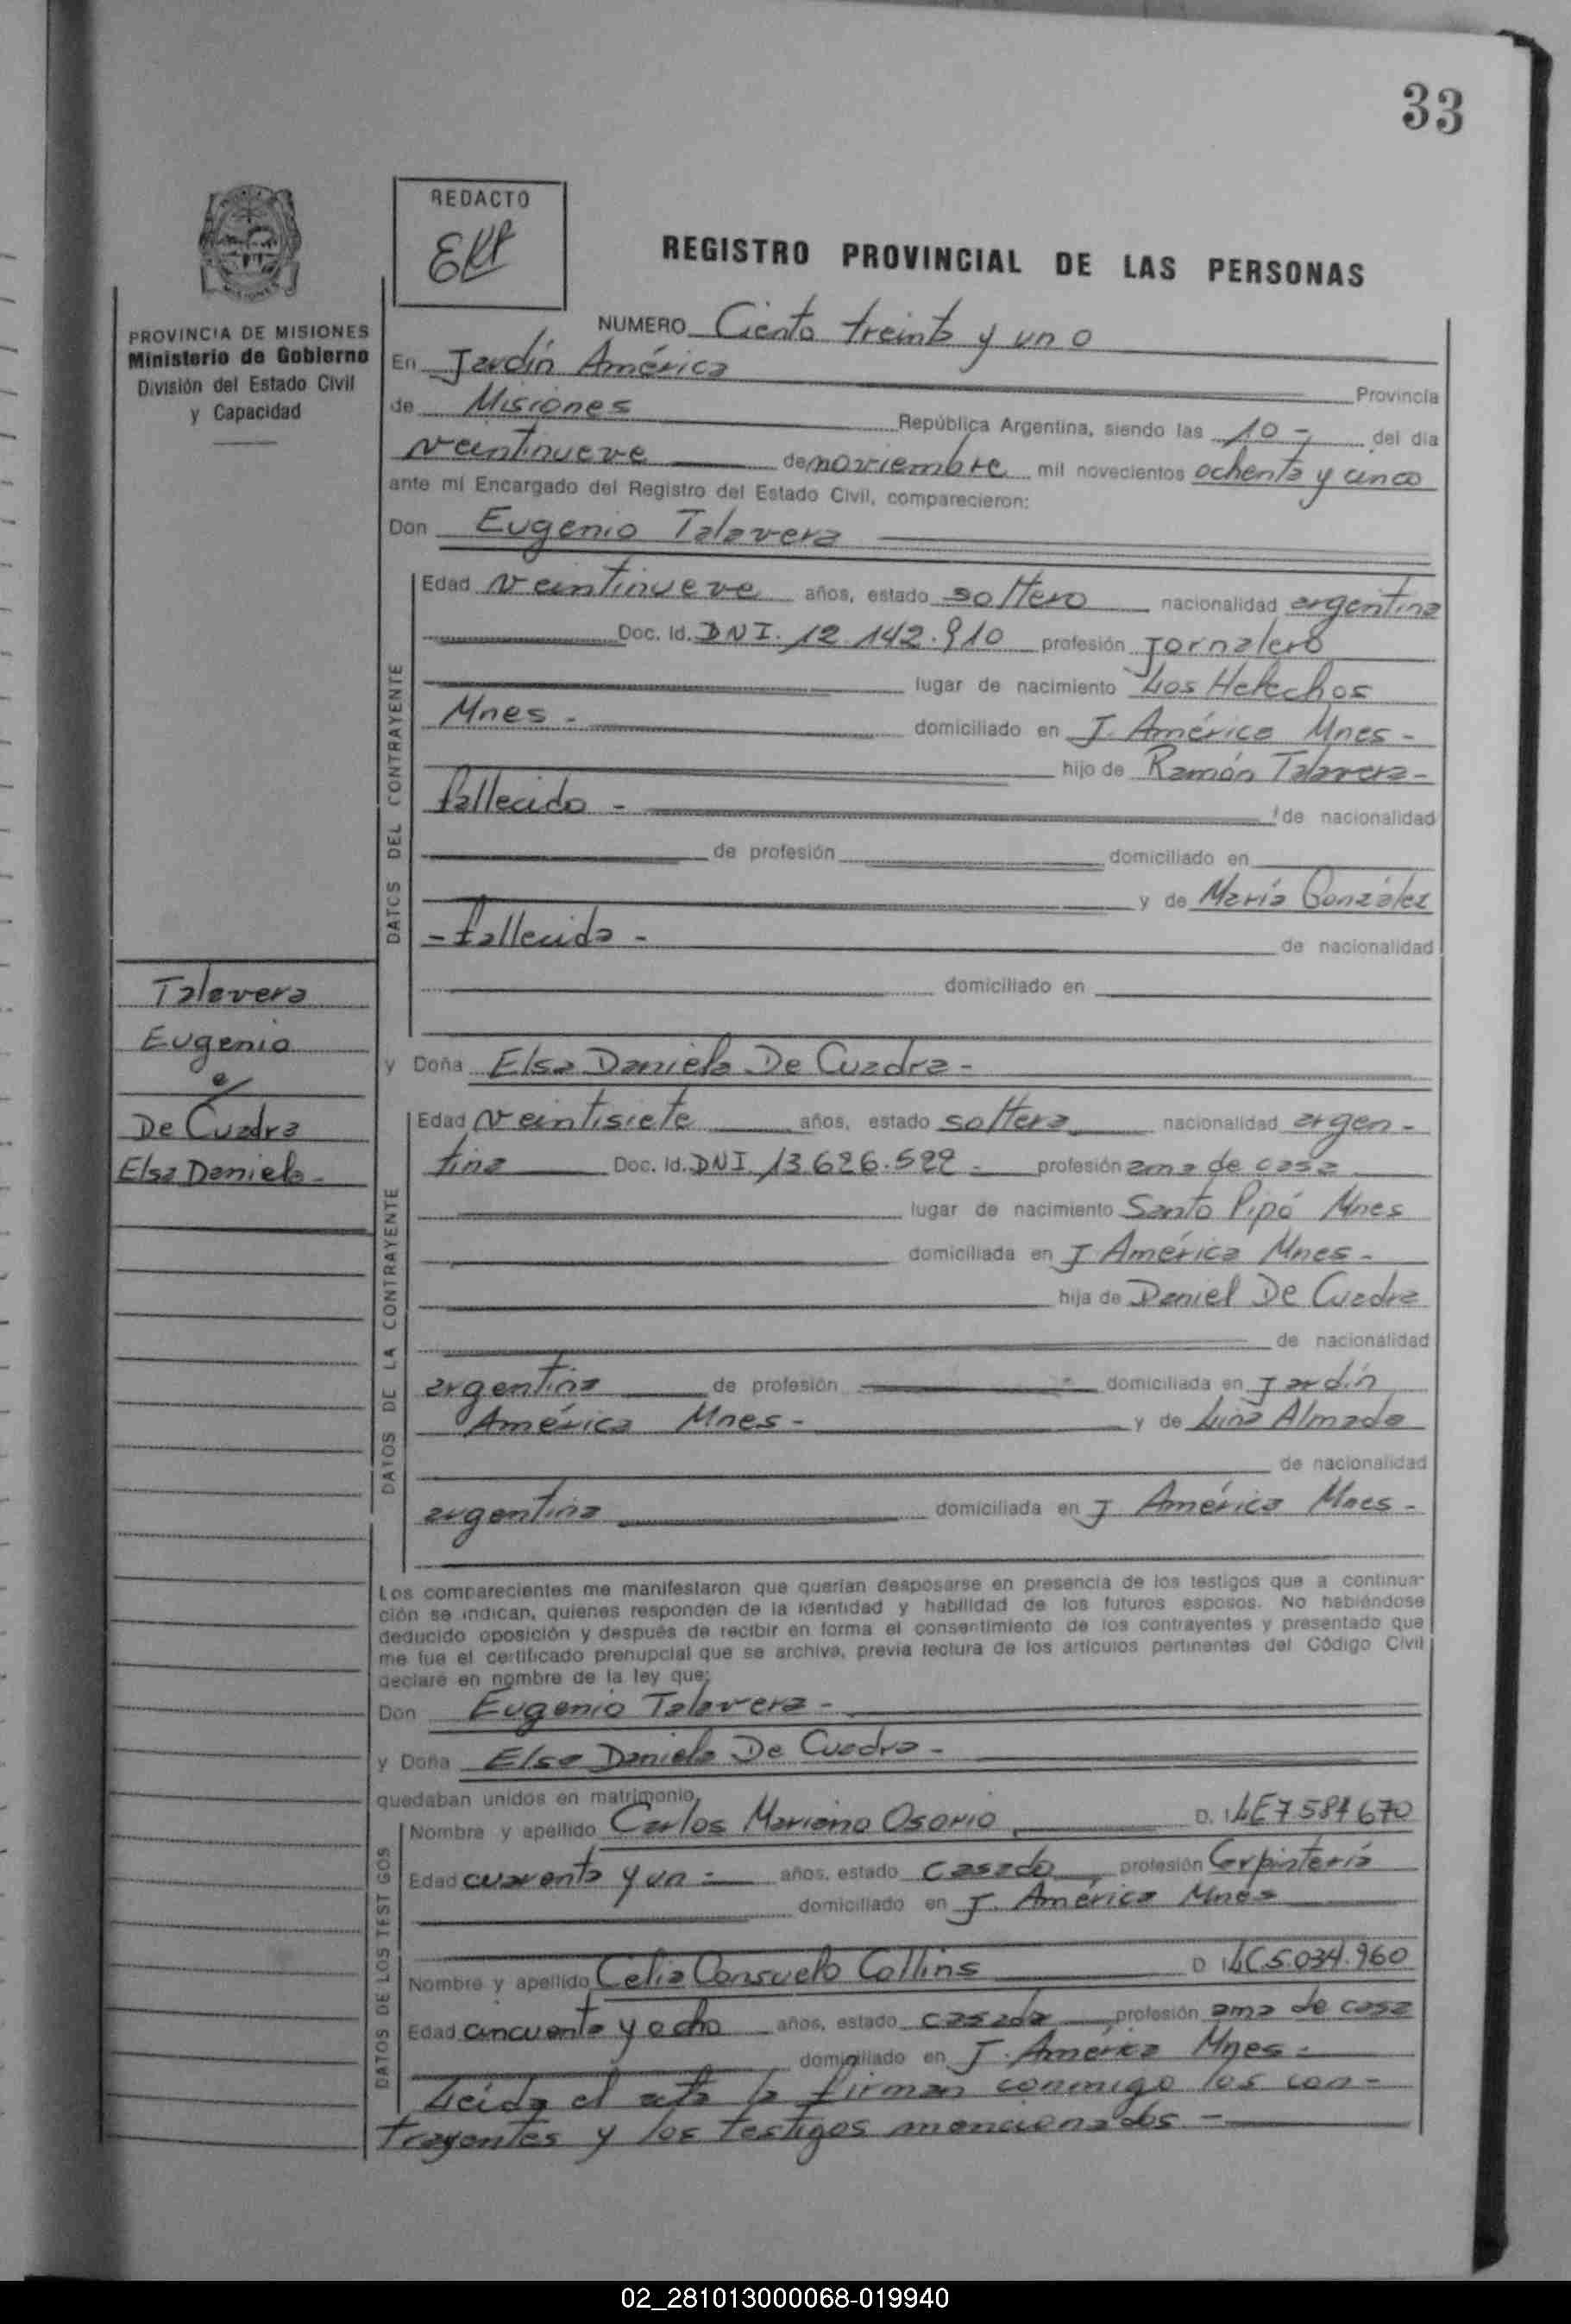 33
REDACTO
REGISTRO PROVINCIAL DE LAS PERSONAS
PROVINCIA DE MISIONES
Ministerio de Gobierno
División del Estado Civil
y Capacidad
NUMERO Ciento treinta y uno
En Jardín América Provincia
de Misiones República Argentina, siendo las 10 - del día
veintinueve de noviembre mil novecientos ochenta y cinco
ante mí Encargado del Registro del Estado Civil, comparecieron:
Don Eugenio Talavera
DATOS DEL CONTRAYENTE
Edad veintinueve años, estado soltero nacionalidad argentina
Doc. Id. DNI. 12.142.910 profesión Jornalero
lugar de nacimiento Los Helechos
Mnes - domiciliado en J. América Mnes -
hijo de Ramón Talavera -
fallecido - de nacionalidad
de profesión domiciliado en
y de María González
- fallecida - de nacionalidad
domiciliado en
Talavera
Eugenio
c/
De Cuadra
Elsa Daniela -
y Doña Elsa Daniela De Cuadra -
DATOS DE LA CONTRAYENTE
Edad veintisiete años, estado soltera nacionalidad argen-
tina Doc. Id. DNI 13.626.522 - profesión ama de casa
lugar de nacimiento Santo Pipó Mnes
domiciliada en J. América Mnes -
hija de Daniel De Cuadra
de nacionalidad
argentina de profesión domiciliada en Jardín
América Mnes - y de Lina Almada
de nacionalidad
argentina domiciliada en J. América Mnes -
Los comparecientes me manifestaron que querían desposarse en presencia de los testigos que a continua-
ción se indican, quienes responden de la identidad y habilidad de los futuros esposos. No habiéndose
deducido oposición y después de recibir en forma el consentimiento de los contrayentes y presentado que
me fue el certificado prenupcial que se archiva, previa lectura de los artículos pertinentes del Código Civil
declaré en nombre de la ley que:
Don Eugenio Talavera -
y Doña Elsa Daniela De Cuadra -
quedaban unidos en matrimonio
DATOS DE LOS TESTIGOS
Nombre y apellido Carlos Mariano Osorio D. I. LE 7584670
Edad cuarenta y un - años, estado casado profesión Carpintería
domiciliado en J. América Mnes
Nombre y apellido Celia Consuelo Collins D. I. LC 5.034.960
Edad cincuenta y ocho años, estado casada profesión ama de casa
domiciliado en J. América Mnes -
Leída el acta la firman conmigo los con-
trayentes y los testigos mencionados -
02_281013000068-019940